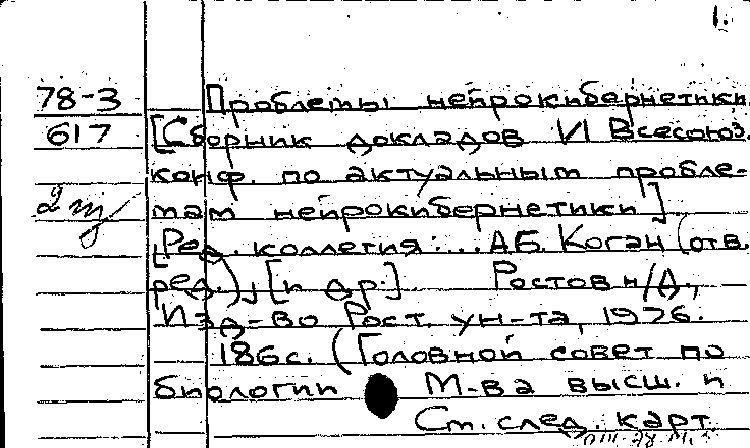 1.
78-3 Проблемы нейрокибернетики
617 [Сборник докладов VI Всесоюз.
конф. по актуальным пробле-
2 мам нейрокибернетики]
[Ред. коллегия:... А.Б. Коган (отв.
ред.), [и др.] Ростов н/Д.,
Изд-во Рост. ун-та, 1976.
186с. (Головной совет по
биологии М-ва высш. и
См. след. карт.